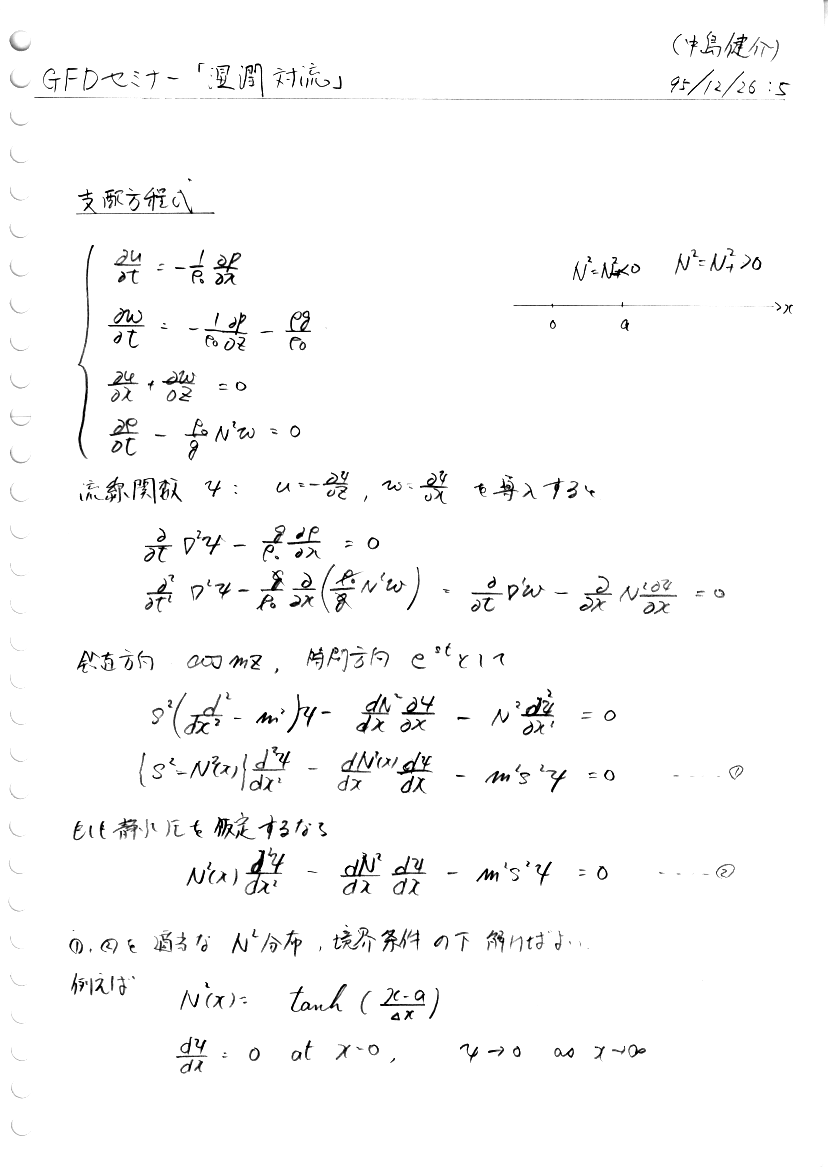 (中島健介)
GFDセミナー「湿潤対流」 95/12/26:5
支配方程式
∂u/∂t = -1/ρ₀ ∂p/∂x
N²=N₋²<0 N²=N₊²>0
∂w/∂t = -1/ρ₀ ∂p/∂z - ρg/ρ₀
0 a x
∂u/∂x + ∂w/∂z = 0
∂ρ/∂t - ρ₀/g N²w = 0
流線関数 ψ: u=-∂ψ/∂z, w=∂ψ/∂x を導入すると
∂/∂t ∇²ψ - g/ρ₀ ∂ρ/∂x = 0
∂²/∂t² ∇²ψ - g/ρ₀ ∂/∂x (ρ₀/g N²w) = ∂/∂t ∇²ψ - ∂/∂x N² ∂ψ/∂x = 0
鉛直方向 cos mz, 時間方向 e^{st} として
s²(d²/dx² - m²)ψ - dN²/dx ∂ψ/∂x - N² d²ψ/∂x² = 0
{s²-N²(x)} d²ψ/dx² - dN²(x)/dx dψ/dx - m²s²ψ = 0 ---- ①
もし静水圧を仮定するなら
N²(x) d²ψ/dx² - dN²/dx dψ/dx - m²s²ψ = 0 ---- ②
①,②を適当な N²分布, 境界条件の下 解けばよい.
例えば
N²(x) = tanh (x-a/Δx)
dψ/dx = 0 at x=0, ψ→0 as x→∞